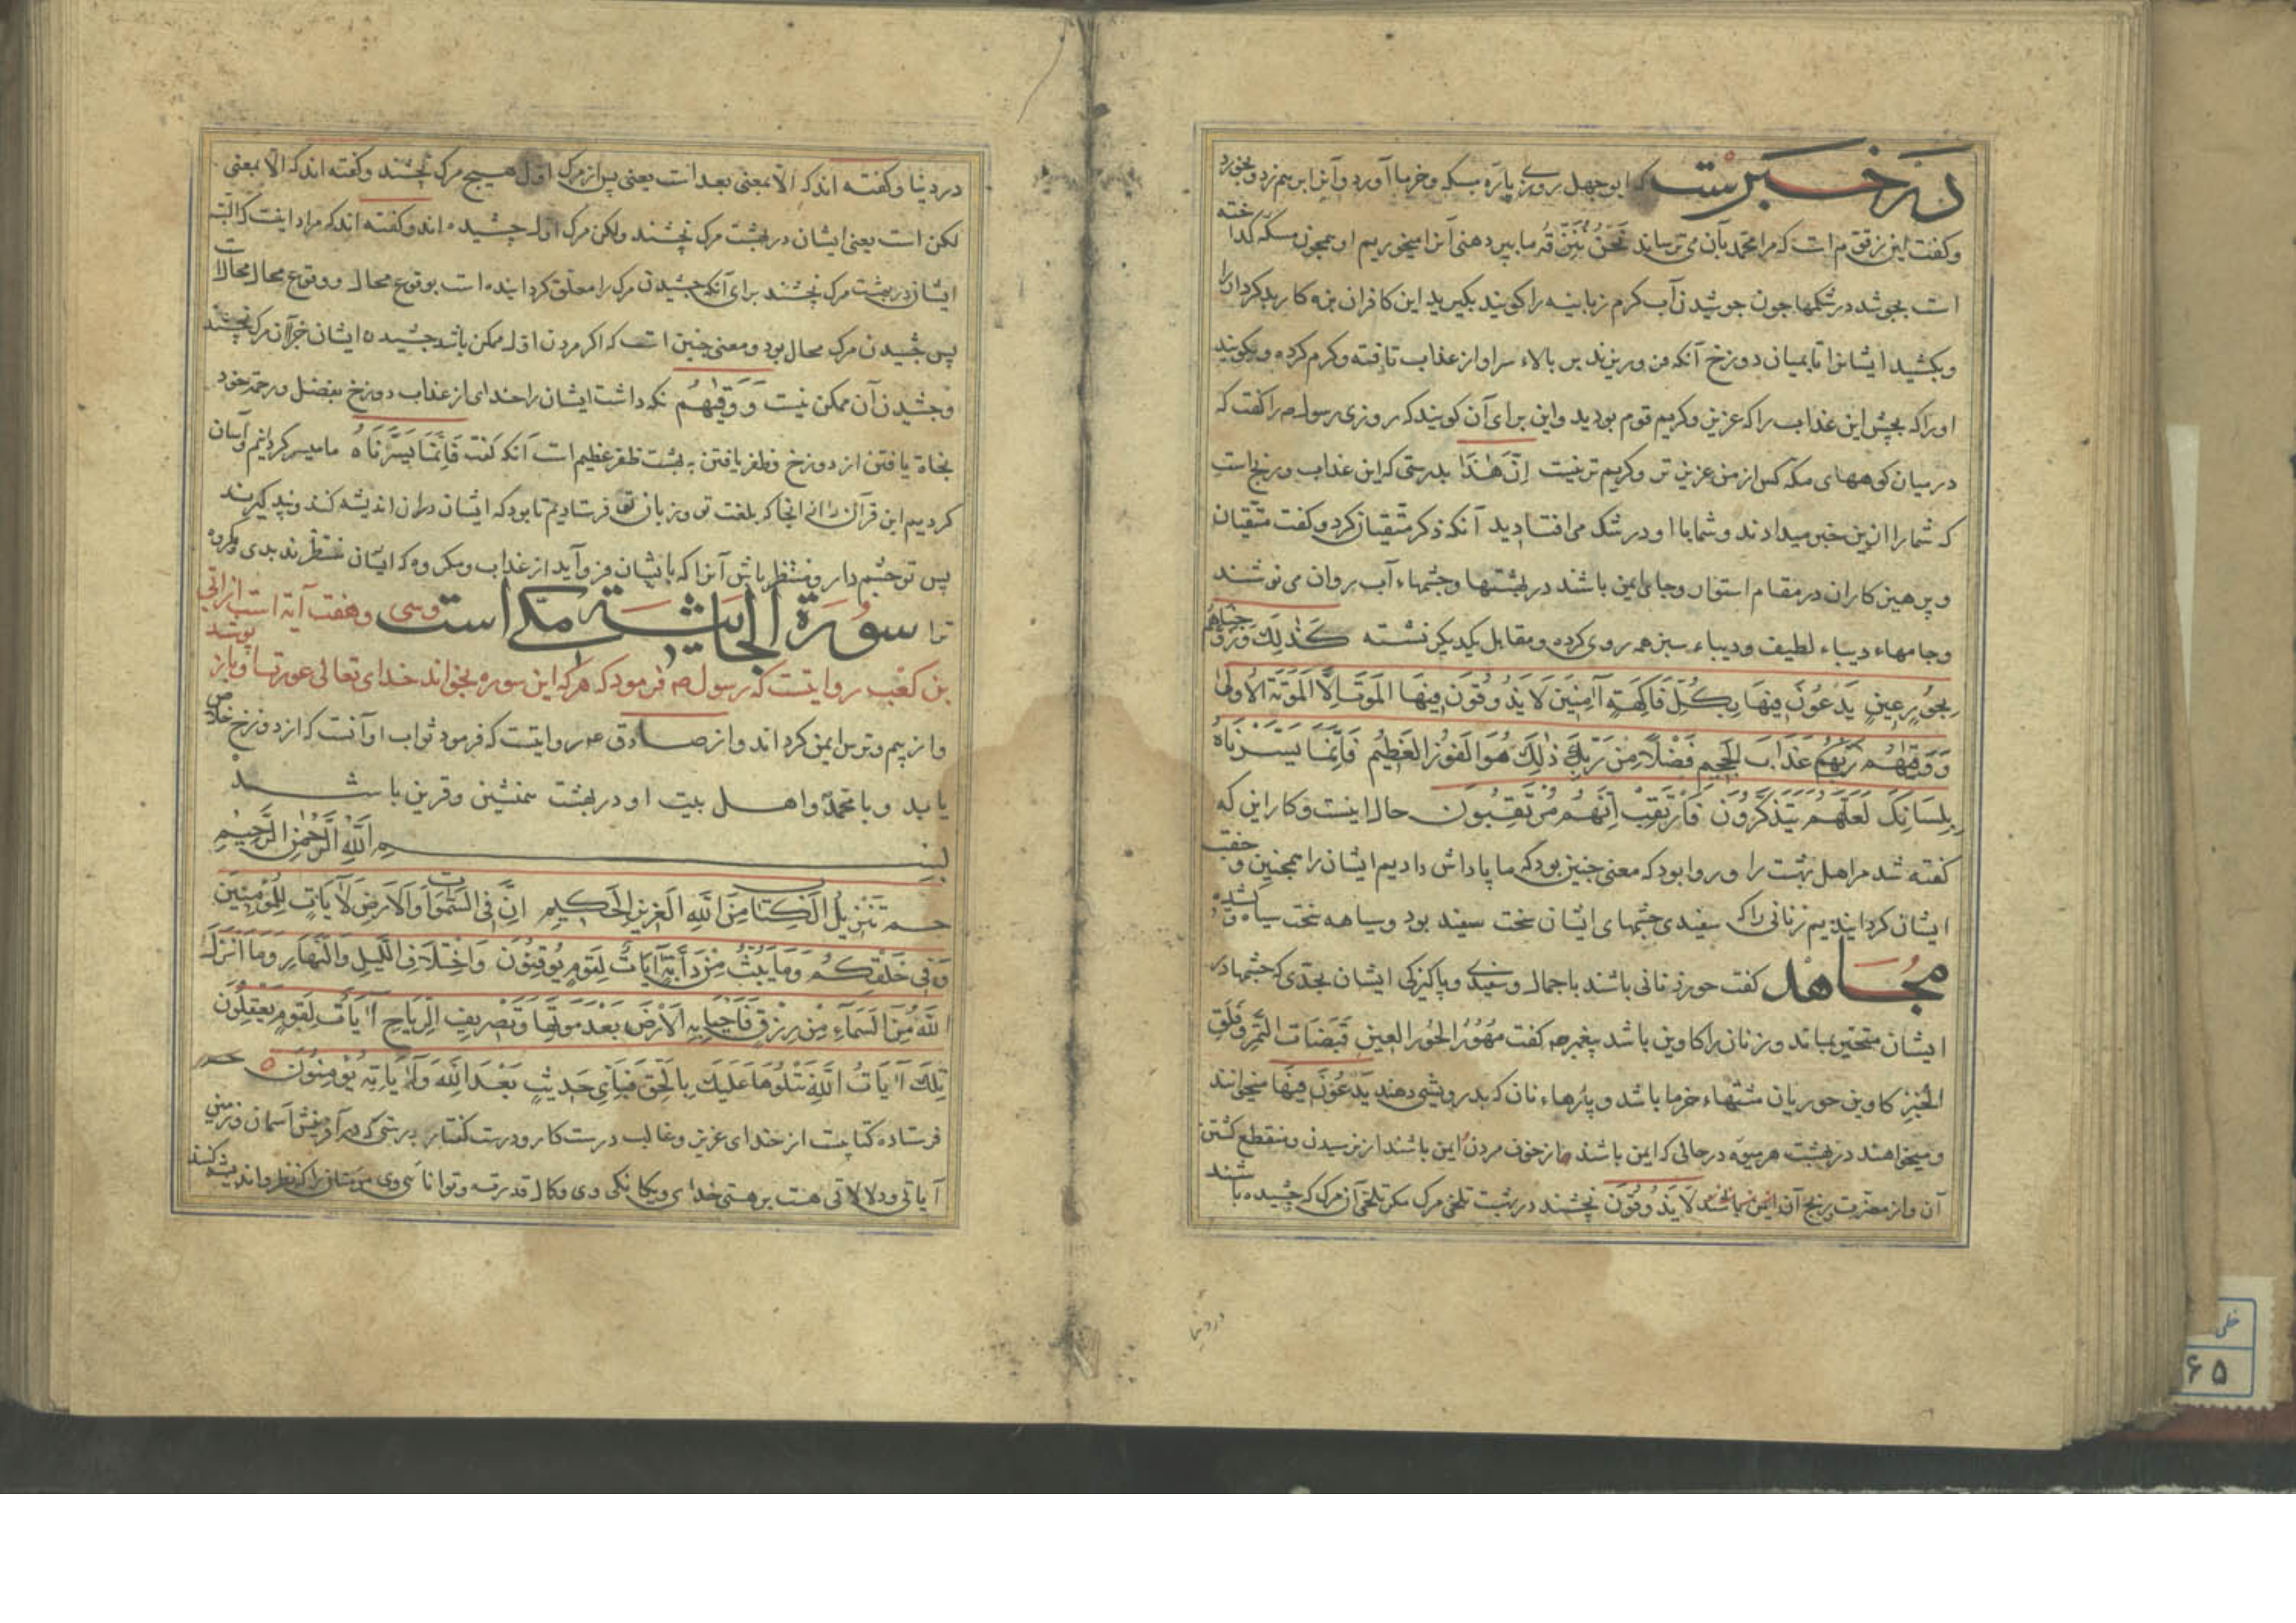 در خبرست که ابوجهل روزی پارهٔ مسکه و خرما آورد و آنرا بر هم زد و بخورد
و کفت این زقوم است که مرا محمد بآن می ترساند نحن ما بپر دهنی آنرا میخوریم او همچون مسکه کداخته
است بجوشد در شکمها جون جوشیدن آب کرم زبانیه را کویند بکیرید این کافران بزه کار بدکردار را
و بکشید ایشانرا تا بمیان دوزخ آنکه فرو ریزند بر بالاء سر او از عذاب تافته و کرم کرده و کویند
او را که بچش این عذاب را که عزیز و کریم قوم بودید و این برای آن کویند که روزی رسول ص را کفت که
در میان کوههای مکه کس از من عزیز تر و کریم تر نیست اِنَّ هٰذَا بدرستی که این عذاب و رنج است
که شما را ازین خبر میدادند و شما با او در شک می افتادید آنکه ذکر متّقیان کرد و کفت متّقیان
و پرهیزکاران در مقام استوار و جای ایمن باشند در بهشتها و چشمهاء آب روان می نوشند
و جامهاء دیباء لطیف و دیباء سبز همه روی کرده و مقابل یکدیکر نشسته کَذٰلِكَ وَزَوَّجْنٰاهُمْ
بِحُورٍ عِینٍ یَدْعُونَ فِیهَا بِکُلِّ فَاکِهَةٍ آمِنِینَ لَا یَذُوقُونَ فِیهَا المَوْتَ اِلَّا المَوْتَةَ الاُولٰی
وَوَقٰیهُمْ رَبُّهُمْ عَذَابَ الجَحِیمِ فَضْلًا مِنْ رَبِّكَ ذٰلِكَ هُوَ الفَوْزُ العَظِیمُ فَاِنَّمَا یَسَّرْنَاهُ
بِلِسَانِكَ لَعَلَّهُمْ یَتَذَکَّرُونَ فَارْتَقِبْ اِنَّهُمْ مُرْتَقِبُونَ حال اینست و کار این که
کفته شد مر اهل بهشت را و روا بود که معنی چنین بود که ما پاداش دادیم ایشان را همچنین و جفت
ایشان کردانیدیم زنانی را که سفیدی چشمهای ایشان سخت سفید بود و سیاهه سخت سیاه
مجاهد کفت حور زنانی باشند با جمال و سفیدی و پاکیزکی ایشان بحدّی که چشمها در
ایشان متحیّر بماند و زنان را کاوین باشد پیغمبر ص کفت مُهُورُ الحُورِ العِینِ قَبَضَاتُ التَّمْرِ وَفِلَقُ
الخُبْزِ کاوین حوریان مشتهاء خرما باشد و پارهاء نان که بدرویش دهند یَدْعُونَ فِیهَا میخوانند
و میخواهند در بهشت هر میوه در حالی که ایمن باشند از خوف مردن ایمن باشند از نرسیدن و منقطع کشتن
آن و از مضرت و رنج آن ایمن باشند لَا یَذُوقُونَ نچشند در بهشت تلخی مرک مکر تلخی آن مرک که چشیده باشند
در دنیا
در دنیا و کفته اند که الّا بمعنی بعد است یعنی پس از مرک اوّل هیچ مرک نچشند و کفته اند که الّا بمعنی
لکن است یعنی ایشان در بهشت مرک نچشند ولکن مرک اول چشیده اند و کفته اند که مراد اینست که البته
ایشان در بهشت مرک نچشند برای آنکه چشیدن مرک را معلق کردانیده است بوقوع محال و وقوع محال محالست
پس چشیدن مرک محال بود و معنی چنین است که اکر مردن اوّل ممکن باشد چشیده ایشان جز آن مرک نچشند
و چشیدن آن ممکن نیست وَ وَقٰیهُمْ نکه داشت ایشان را خدای از عذاب دوزخ بفضل و رحمة خود
نجاة یافتن از دوزخ و ظفر یافتن به بهشت ظفر عظیم است آنکه کفت فَاِنَّمَا یَسَّرْنَاهُ ما میسر کردانیدیم و آسان
کردیم این قرآن را از انجا که بلغت تو و زبان تو فرستادیم تا بود که ایشان در ان اندیشه کنند و پند کیرند
پس تو چشم دار و منتظر باش آنرا که بایشان فرو آید از عذاب و مکروه که ایشان منتظرند بدی و مکروه
ترا سورة الجاثیة مکّی است و سی و هفت آیة است از ابی
بن کعب روایتست که رسول ص فرمود که هرکه این سوره بخواند خدای تعالی عورتها او باز پوشد
و از بیم و ترس ایمن کرداند و از صادق ع روایتست که فرمود ثواب او آنست که از دوزخ خلاص
یابد و با محمّد و اهل بیت او در بهشت همنشین و قرین باشد
بسم الله الرَّحمٰنِ الرَّحِیمِ
حم تَنْزِیلُ الکِتَابِ مِنَ اللّٰهِ العَزِیزِ الحَکِیمِ اِنَّ فِی السَّمٰوَاتِ وَالاَرْضِ لَآیَاتٍ لِلمُؤْمِنِینَ
وَفِی خَلْقِکُمْ وَمَا یَبُثُّ مِنْ دَابَّةٍ آیَاتٌ لِقَوْمٍ یُوقِنُونَ وَاخْتِلَافِ اللَّیلِ وَالنَّهَارِ وَمَا اَنْزَلَ
اللّٰهُ مِنَ السَّمَاءِ مِنْ رِزْقٍ فَاَحْیَا بِهِ الاَرْضَ بَعْدَ مَوْتِهَا وَتَصْرِیفِ الرِّیَاحِ آیَاتٌ لِقَوْمٍ یَعْقِلُونَ
تِلْكَ آیَاتُ اللّٰهِ نَتْلُوهَا عَلَیْكَ بِالحَقِّ فَبِاَیِّ حَدِیثٍ بَعْدَ اللّٰهِ وَآیَاتِهِ یُؤْمِنُونَ حم
فرستاده کتابیست از خدای عزیز و غالب درست کار و درست کفتار بدرستی که در آفرینش آسمان و زمین
آیاتی و دلالاتی هست بر هستی خدای و یکانکی وی و کمال قدرت و توانایی وی مؤمنان را که نظر و اندیشه کنند
خطی
۶۵